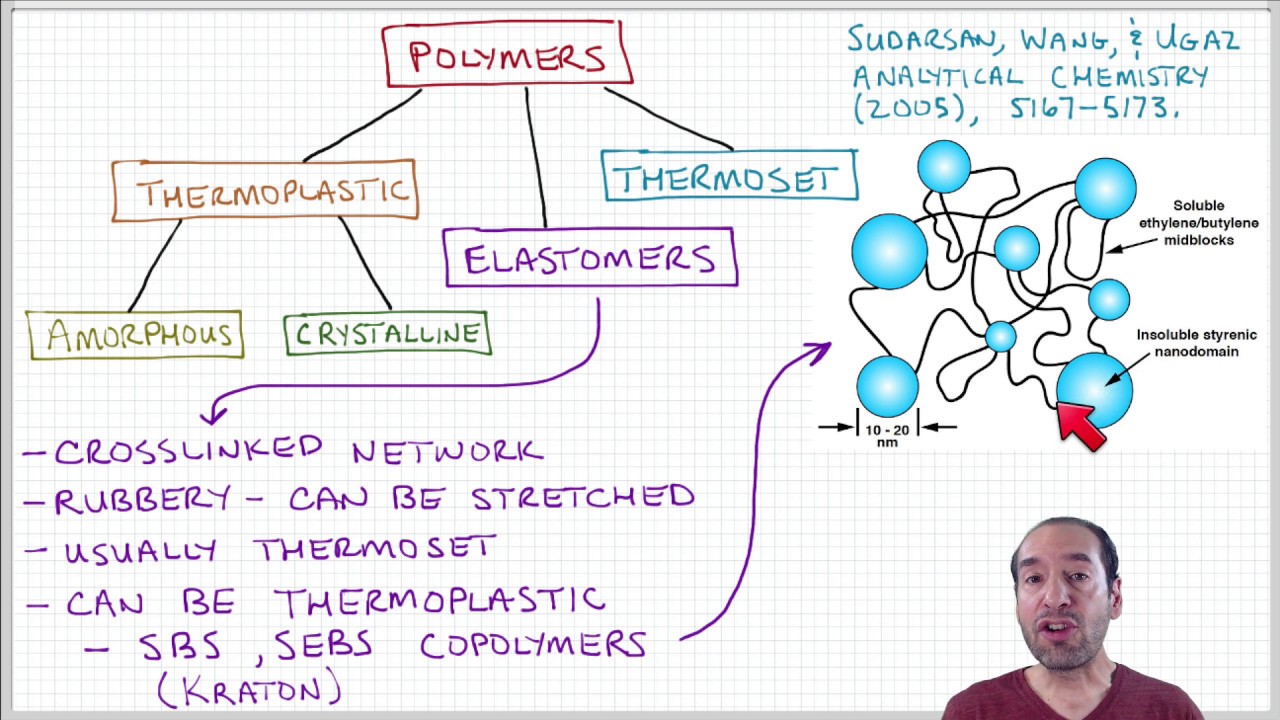 POLYMERS
THERMOPLASTIC
THERMOSET
ELASTOMERS
AMORPHOUS
CRYSTALLINE
- CROSSLINKED NETWORK
- RUBBERY - CAN BE STRETCHED
- USUALLY THERMOSET
- CAN BE THERMOPLASTIC
- SBS, SEBS COPOLYMERS
(KRATON)
SUDARSAN, WANG, & UGAZ
ANALYTICAL CHEMISTRY
(2005), 5167-5173.
Soluble
ethylene/butylene
midblocks
Insoluble styrenic
nanodomain
10 - 20
nm